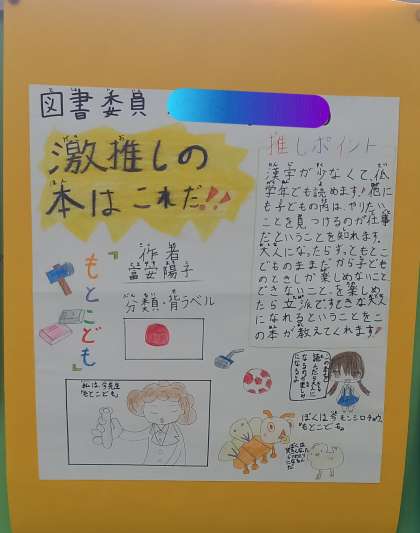 図書委員
激推しの
本はこれだ!!
推しポイント
漢字が少なくて、低
学年でも読めます!他に
も子どもの内は、やりたい
ことを見つけるのが仕事
だということを知れます。
大人になったらず、ともとこ
どものままだから子ども
のときしか楽しめないこと、
できないことを楽しめ
たら立派ですてきな大人
になれるということをこ
の本が教えてくれます!
作者
富安陽子
分類・背ラベル
『もとこども』
私は、今先生
もとこども
この本を
読んだら大人に
なるのが楽しみ
になるよ
ぼくは今モンシロチョウ
もとこども
ぼくは